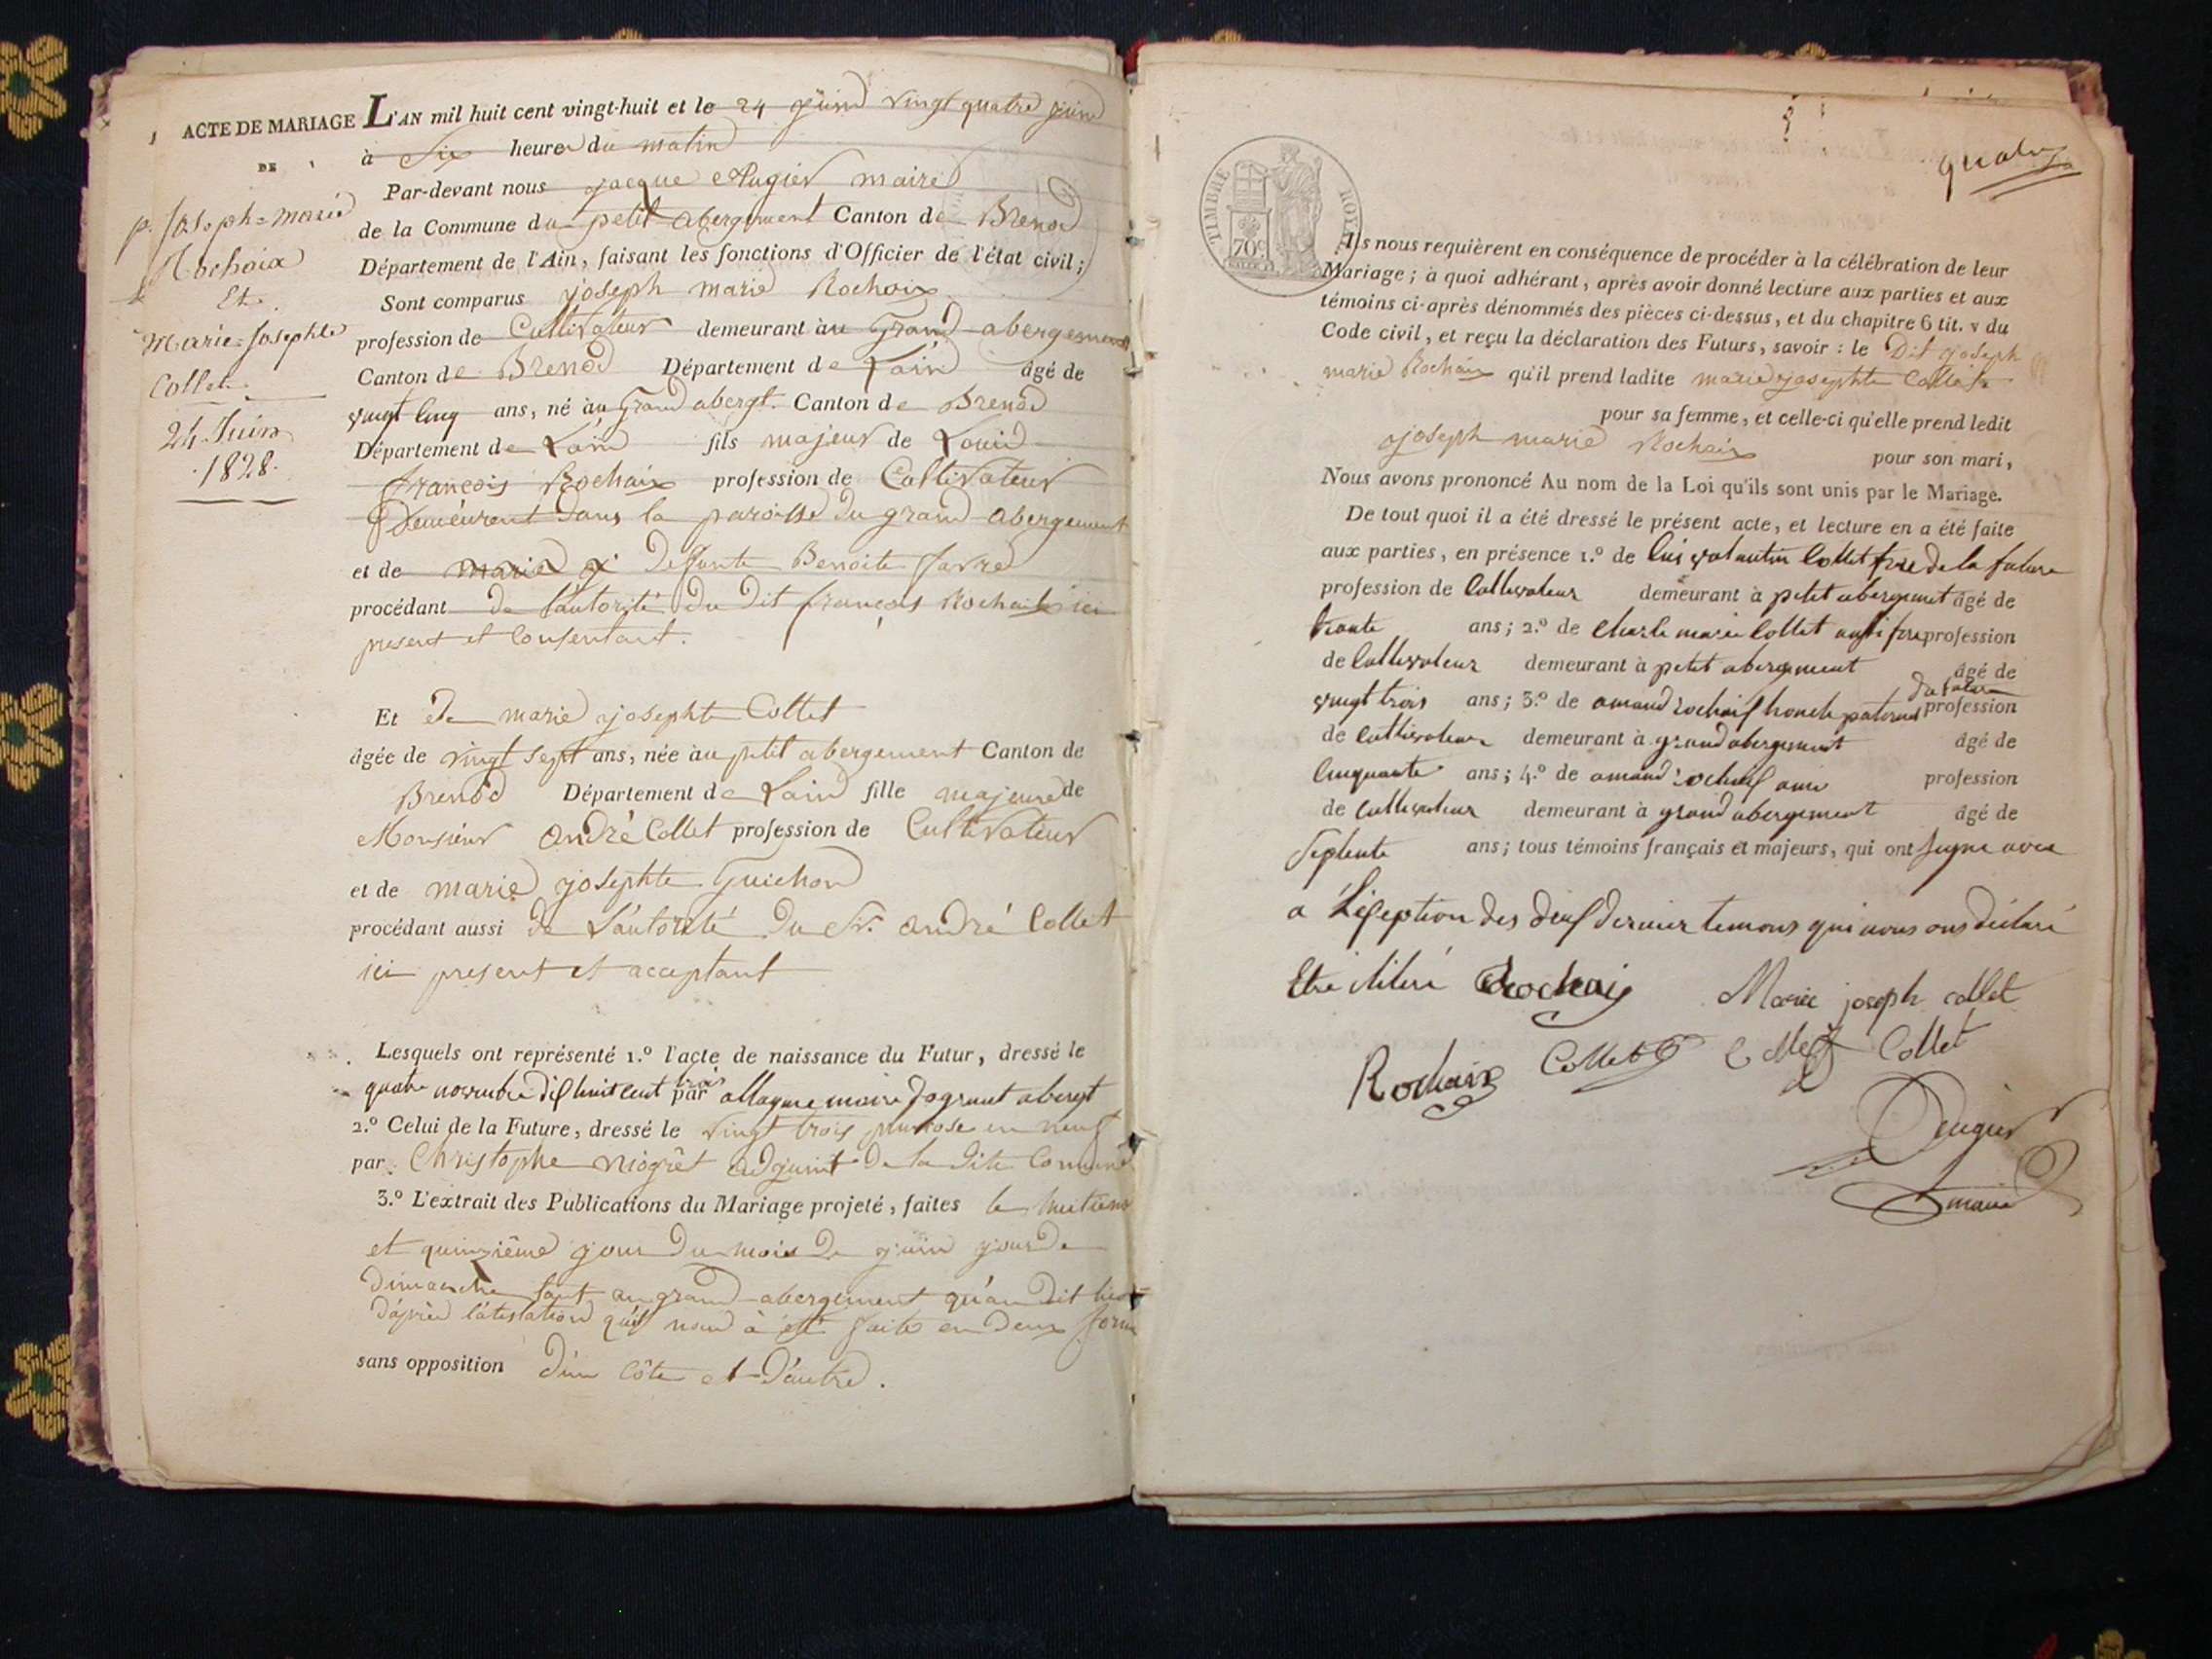 ACTE DE MARIAGE
DE
p. Joseph=marie
Rochaix
Et
Marie=Josephte
Collet.
24 Juin
1828.
L'AN mil huit cent vingt-huit et le 24 juin vingt quatre juin
à Six heures du matin
Par-devant nous jacque Augier maire
de la Commune du petit abergement Canton de Brenod
Département de l'Ain, faisant les fonctions d'Officier de l'état civil;
Sont comparus joseph marie Rochaix
profession de Cultivateur demeurant au Grand abergement
Canton de Brenod Département de Lain âgé de
vingt cinq ans, né au Grand abergt. Canton de Brenod
Département de Lain fils majeur de Louis
françois Rochaix profession de Cultivateur
Demeurent dans la paroisse du grand abergement
et de marie j deffunte Benoite favre
procédant de l'autorité du dit françois Rochaix ici
present et Consentant.
Et de marie josephte Collet
âgée de vingt sept ans, née au petit abergement Canton de
Brenod Département de Lain fille majeure de
Monsieur andré Collet profession de Cultivateur
et de marie josephte Guichon
procédant aussi de L'autorité du Sr. andré Collet
ici present et acceptant
Lesquels ont représenté 1.º l'acte de naissance du Futur, dressé le
quatre novembre dix huit cent trois par maire abergt
2.º Celui de la Future, dressé le vingt trois an neuf
par Christophe niogret adjoint de la dite Commune
3.º L'extrait des Publications du Mariage projeté, faites le huitieme
et quinzième jour du mois de juin jour de
Dimanche tant au grand abergement qu'au dit lieu
d'après l'atestation qu'il nous à été faite en deux forme
sans opposition d'un côte et d'autre.
quatre
TIMBRE ROYAL
70c
Ils nous requièrent en conséquence de procéder à la célébration de leur
Mariage; à quoi adhérant, après avoir donné lecture aux parties et aux
témoins ci-après dénommés des pièces ci-dessus, et du chapitre 6 tit. v du
Code civil, et reçu la déclaration des Futurs, savoir: le Dit joseph
marie Rochaix qu'il prend ladite marie josephte Collet
pour sa femme, et celle-ci qu'elle prend ledit
joseph marie Rochaix pour son mari,
Nous avons prononcé Au nom de la Loi qu'ils sont unis par le Mariage.
De tout quoi il a été dressé le présent acte, et lecture en a été faite
aux parties, en présence 1.º de luis valantin Collet frere de la future
profession de Cultivateur demeurant à petit abergement âgé de
trante ans; 2.º de Charle marie Collet frere profession
de Cultivateur demeurant à petit abergement âgé de
vingt trois ans; 3.º de amand rochaix honcle paternel du futur profession
de cultivateur demeurant à grand abergement âgé de
Cinquante ans; 4.º de amand rochaix ami profession
de Cultivateur demeurant à grand abergement âgé de
Septente ans; tous témoins français et majeurs, qui ont signe avec
a L'exseption des deux dernier temons qui nous ons déclaré
Etre iliteré Rochaix Marie joseph collet
Rochaix Collet Collet Collet
Augier
maire